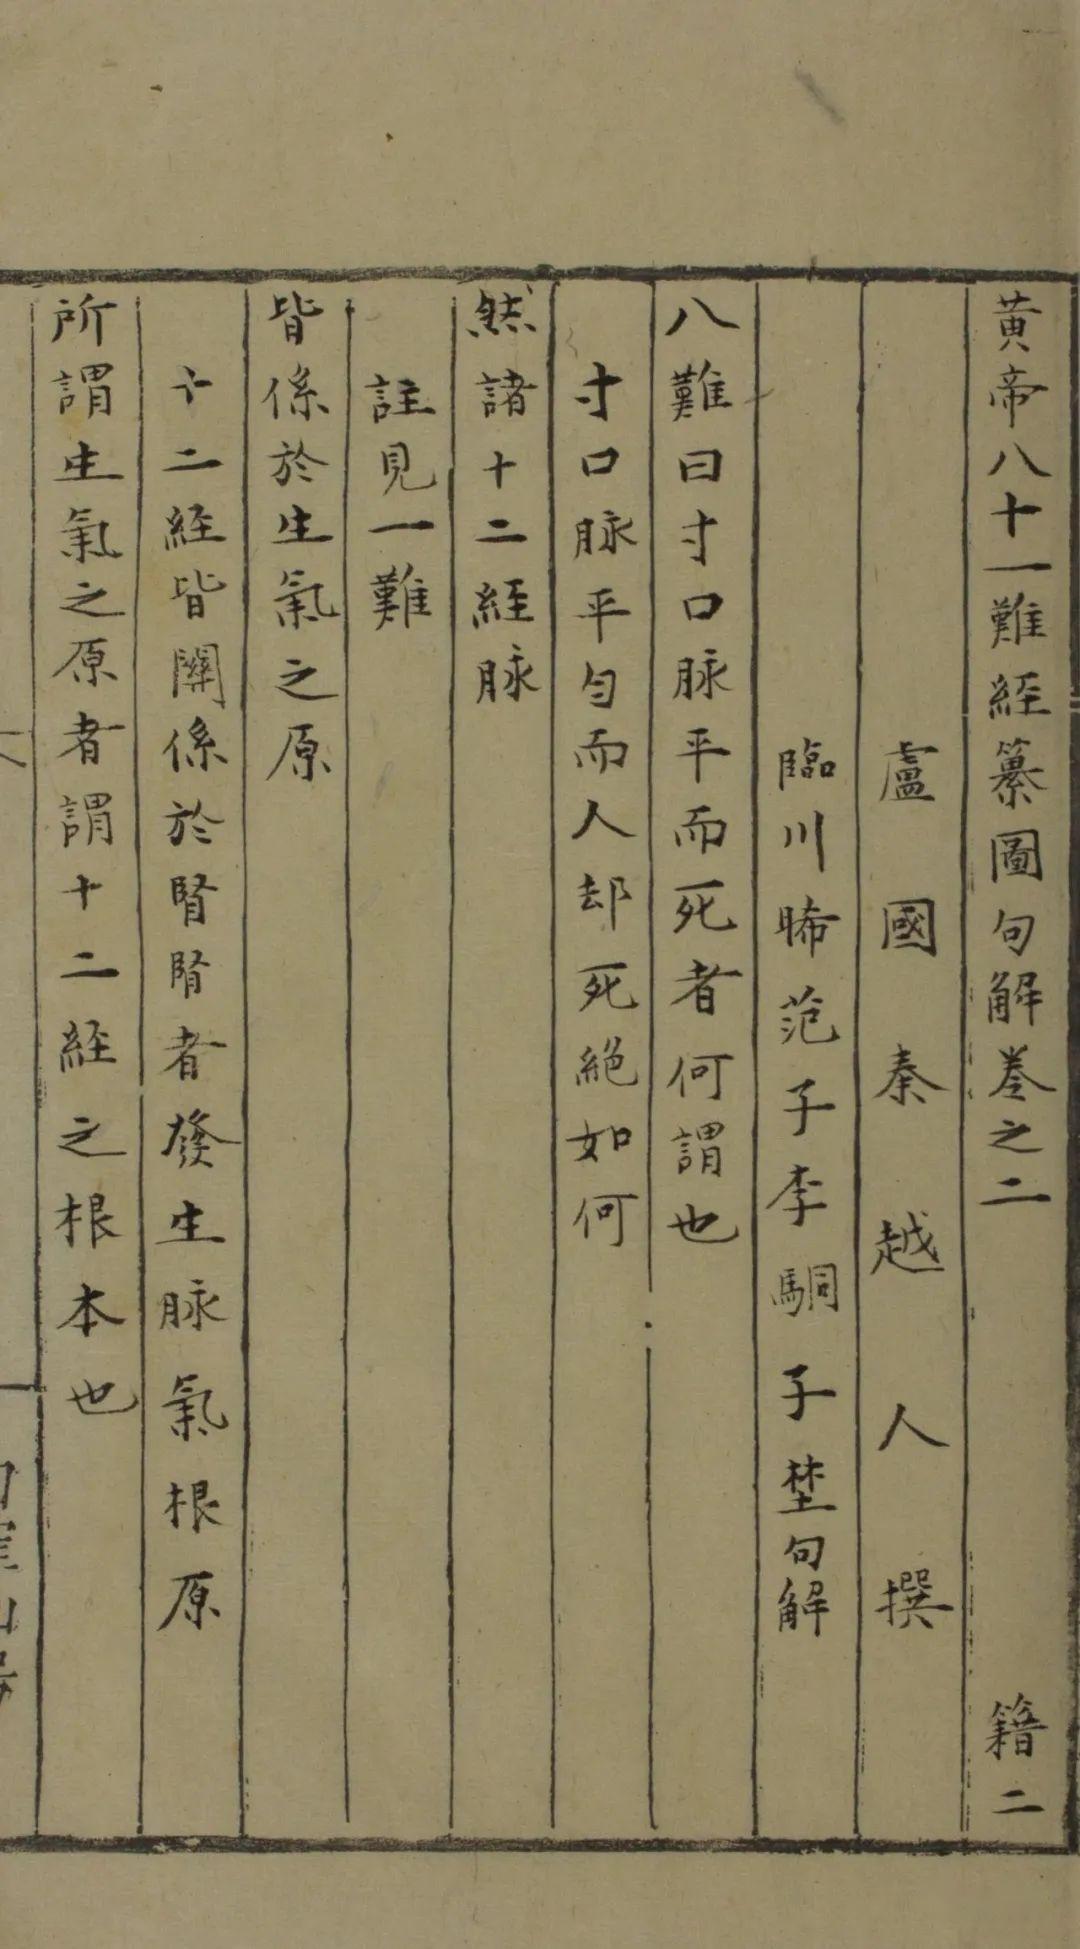 黃帝八十一難經纂圖句解卷之二 籍二
盧國秦越人撰
臨川晞范子李駉子埜句解
八難曰寸口脉平而死者何謂也
寸口脉平勻而人却死絕如何
然諸十二經脉
註見一難
皆係於生氣之原
十二經皆關係於腎腎者發生脉氣根原
所謂生氣之原者謂十二經之根本也